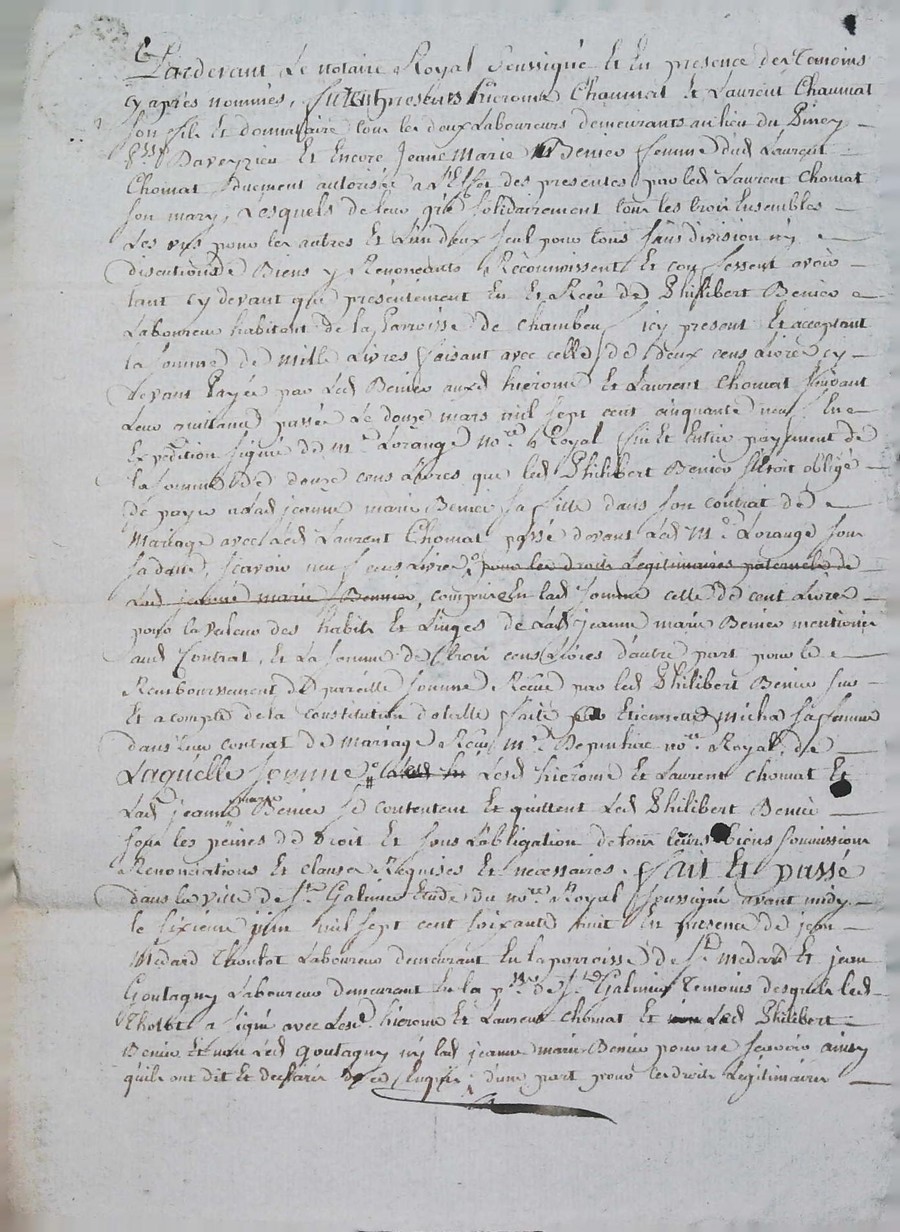 Pardevant Le notaire Royal soussigné Et En presence des Temoins
cy après nommés, furent presents hierome Chaumat Et Laurent Chaumat
son fils Et donnataire tous les deux Laboureurs demeurants au lieu du Piney
Daveyzieu Et Encore Jeane Marie Benier femme dud Laurent
Chomat duement autorisée a L'Effet des presentes par led Laurent Chomat
son mary, Lesquels de leur gré solidairement tous les trois Ensembles
Les uns pour les autres Et L'un deux seul pour tous sans division ny
discutions de Biens y Renonceants Reconnissent Et confessent avoir
tant cy devant que présentement Eu Et Receu de Philibert Benier
Laboureur habitant de la Parroisse de chambeu icy present Et acceptant
la somme de mille Livres faisant avec celle de deux cens Livres cy
devant Payée par Led Benier auxd hierome Et Laurent Chomat suivant
Leur quittance passée Le douze mars mil sept cens cinquante neuf En
Expedition signée de me Lorange nore Royal fin et Entier payement de
la somme de douze cens Livres que led Philibert Benier s'étoit obligé
de payer a Lad jeanne marie Benier sa fille dans son contrat de
Mariage avec Led Laurent Chomat passé devant Led Me Lorange sous
sa datte, scavoir neuf cens Livres pour les droits Legitimaires paternels de
Lad jeanne marie Bennier, comprise En lad somme celle de cent Livres
pour la valeur des habits Et Linges de Lad jeanne marie Benier mentionné
aud Contrat, Et La somme de trois cens Livres d'autre part pour le
Remboursement de pareille somme Reçue par led Philibert Benier sur
Et a compte de la constitution dotalle faite Etiennette micha sa femme
dans Leur contrat de mariage Reçu me Depunture nore Royal, de
Laquelle somme Lesd hierome Et Laurent chomat Et
Lad jeanne marie Benier se contentent Et quittent Led Philibert Benier
sous les peines de Droit Et sous L'obligation de tous leurs biens soumissions
Renonciations Et clauses Requises Et necessaires. fait Et passé
dans la ville de St Galmier Etude du nore Royal soussigné avant midy
le sixieme juin mil sept cent soixante huit En presence de jean
Medard Thoulot Laboureur demeurant En la parroisse de St medard Et jean
Goutagny Laboureur demeurant En la psse de St Galmier Temoins desquels led
Tholot a signé avec Lesd hierome Et Laurent chomat Et Led Philibert
Benier Et non Led Goutagny ny lad jeanne marie Benier pour ne scavoir ainsy
qu'ils ont dit Et declarés de ce Enquis, d'une part pour les droits Légitimaires